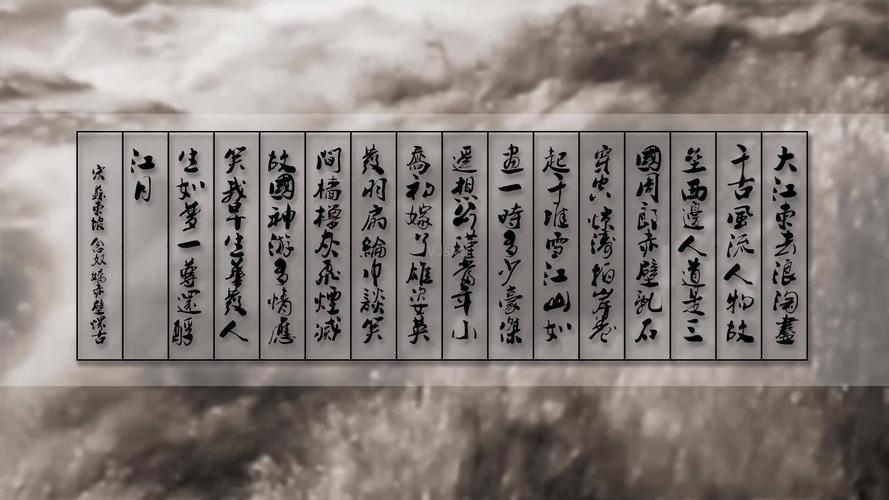 大江東去浪淘盡
千古風流人物故
壘西邊人道是三
國周郎赤壁亂石
穿空惊濤拍岸卷
起千堆雪江山如
畫一時多少豪傑
遥想公瑾當年小
喬初嫁了雄姿英
發羽扇綸巾談笑
間檣櫓灰飛煙滅
故國神游多情應
笑我早生華發人
生如夢一尊還酹
江月
宋蘇東坡念奴嬌赤壁懷古